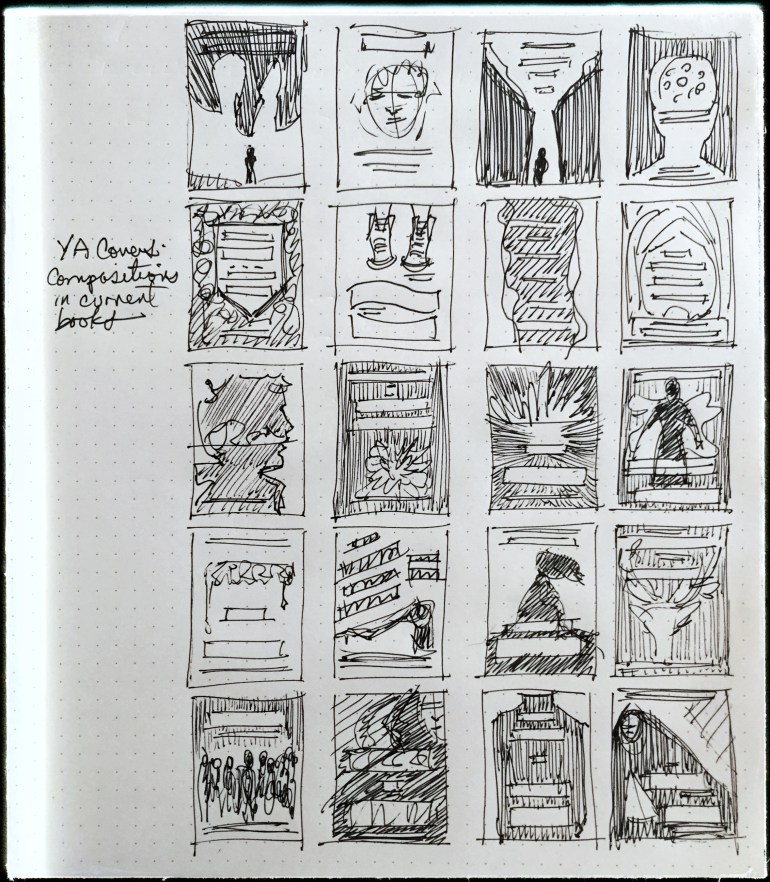 YA Covers:
Compositions
in current
books